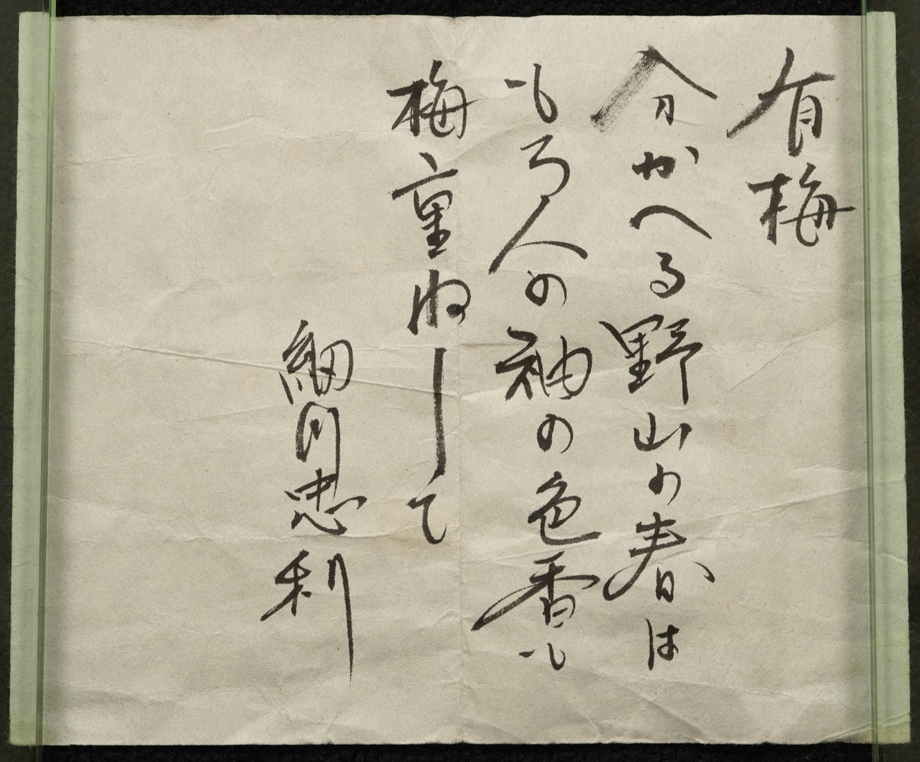 有梅
分かへる野山の春は
もろ人の袖の色香も
梅重ねして
細川忠利